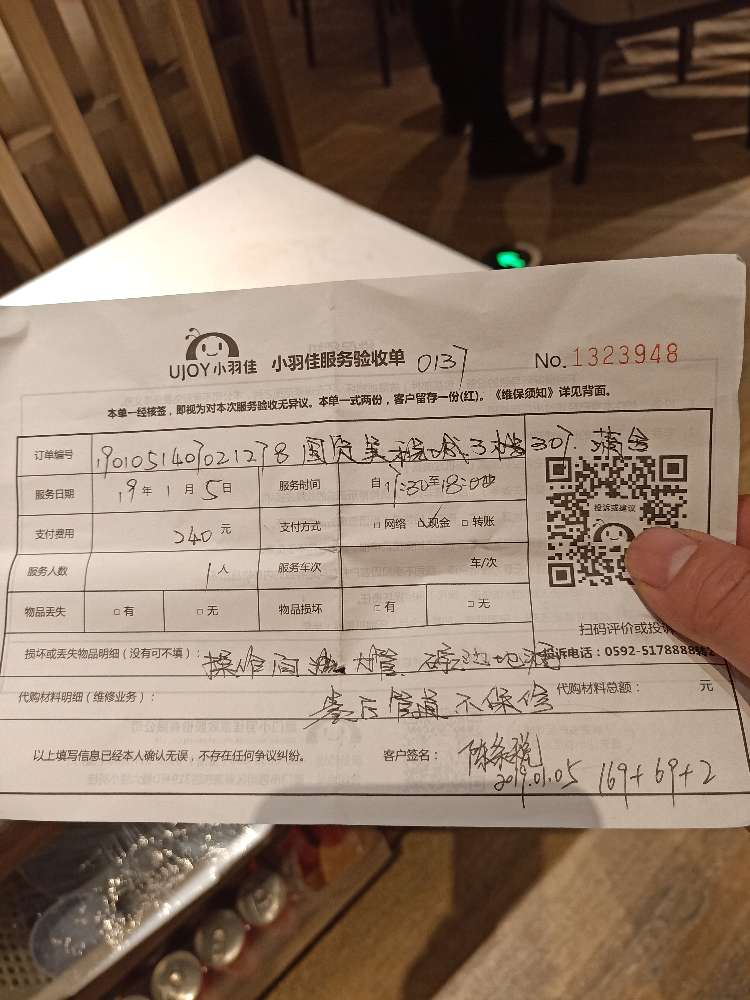 UJOY小羽佳 小羽佳服务验收单 0137 No.1323948
本单一经核签，即视为对本次服务验收无异议。本单一式两份，客户留存一份(红)。《维保须知》详见背面。
订单编号 1901051407021278
服务日期 19年1月5日 服务时间 自17:30至18:00
投诉或建议
支付费用 240元 支付方式 □网络 □现金 □转账
服务人数 1人 服务车次 车/次
物品丢失 □有 □无 物品损坏 □有 □无
扫码评价或投诉
损坏或丢失物品明细（没有可不填）： 操作间 大管 地漏 投诉电话：0592-5178888转
代购材料明细（维修业务）： 管道不保修 代购材料总额： 元
以上填写信息已经本人确认无误，不存在任何争议纠纷。 客户签名： 陈
2019.01.05 169+69+2